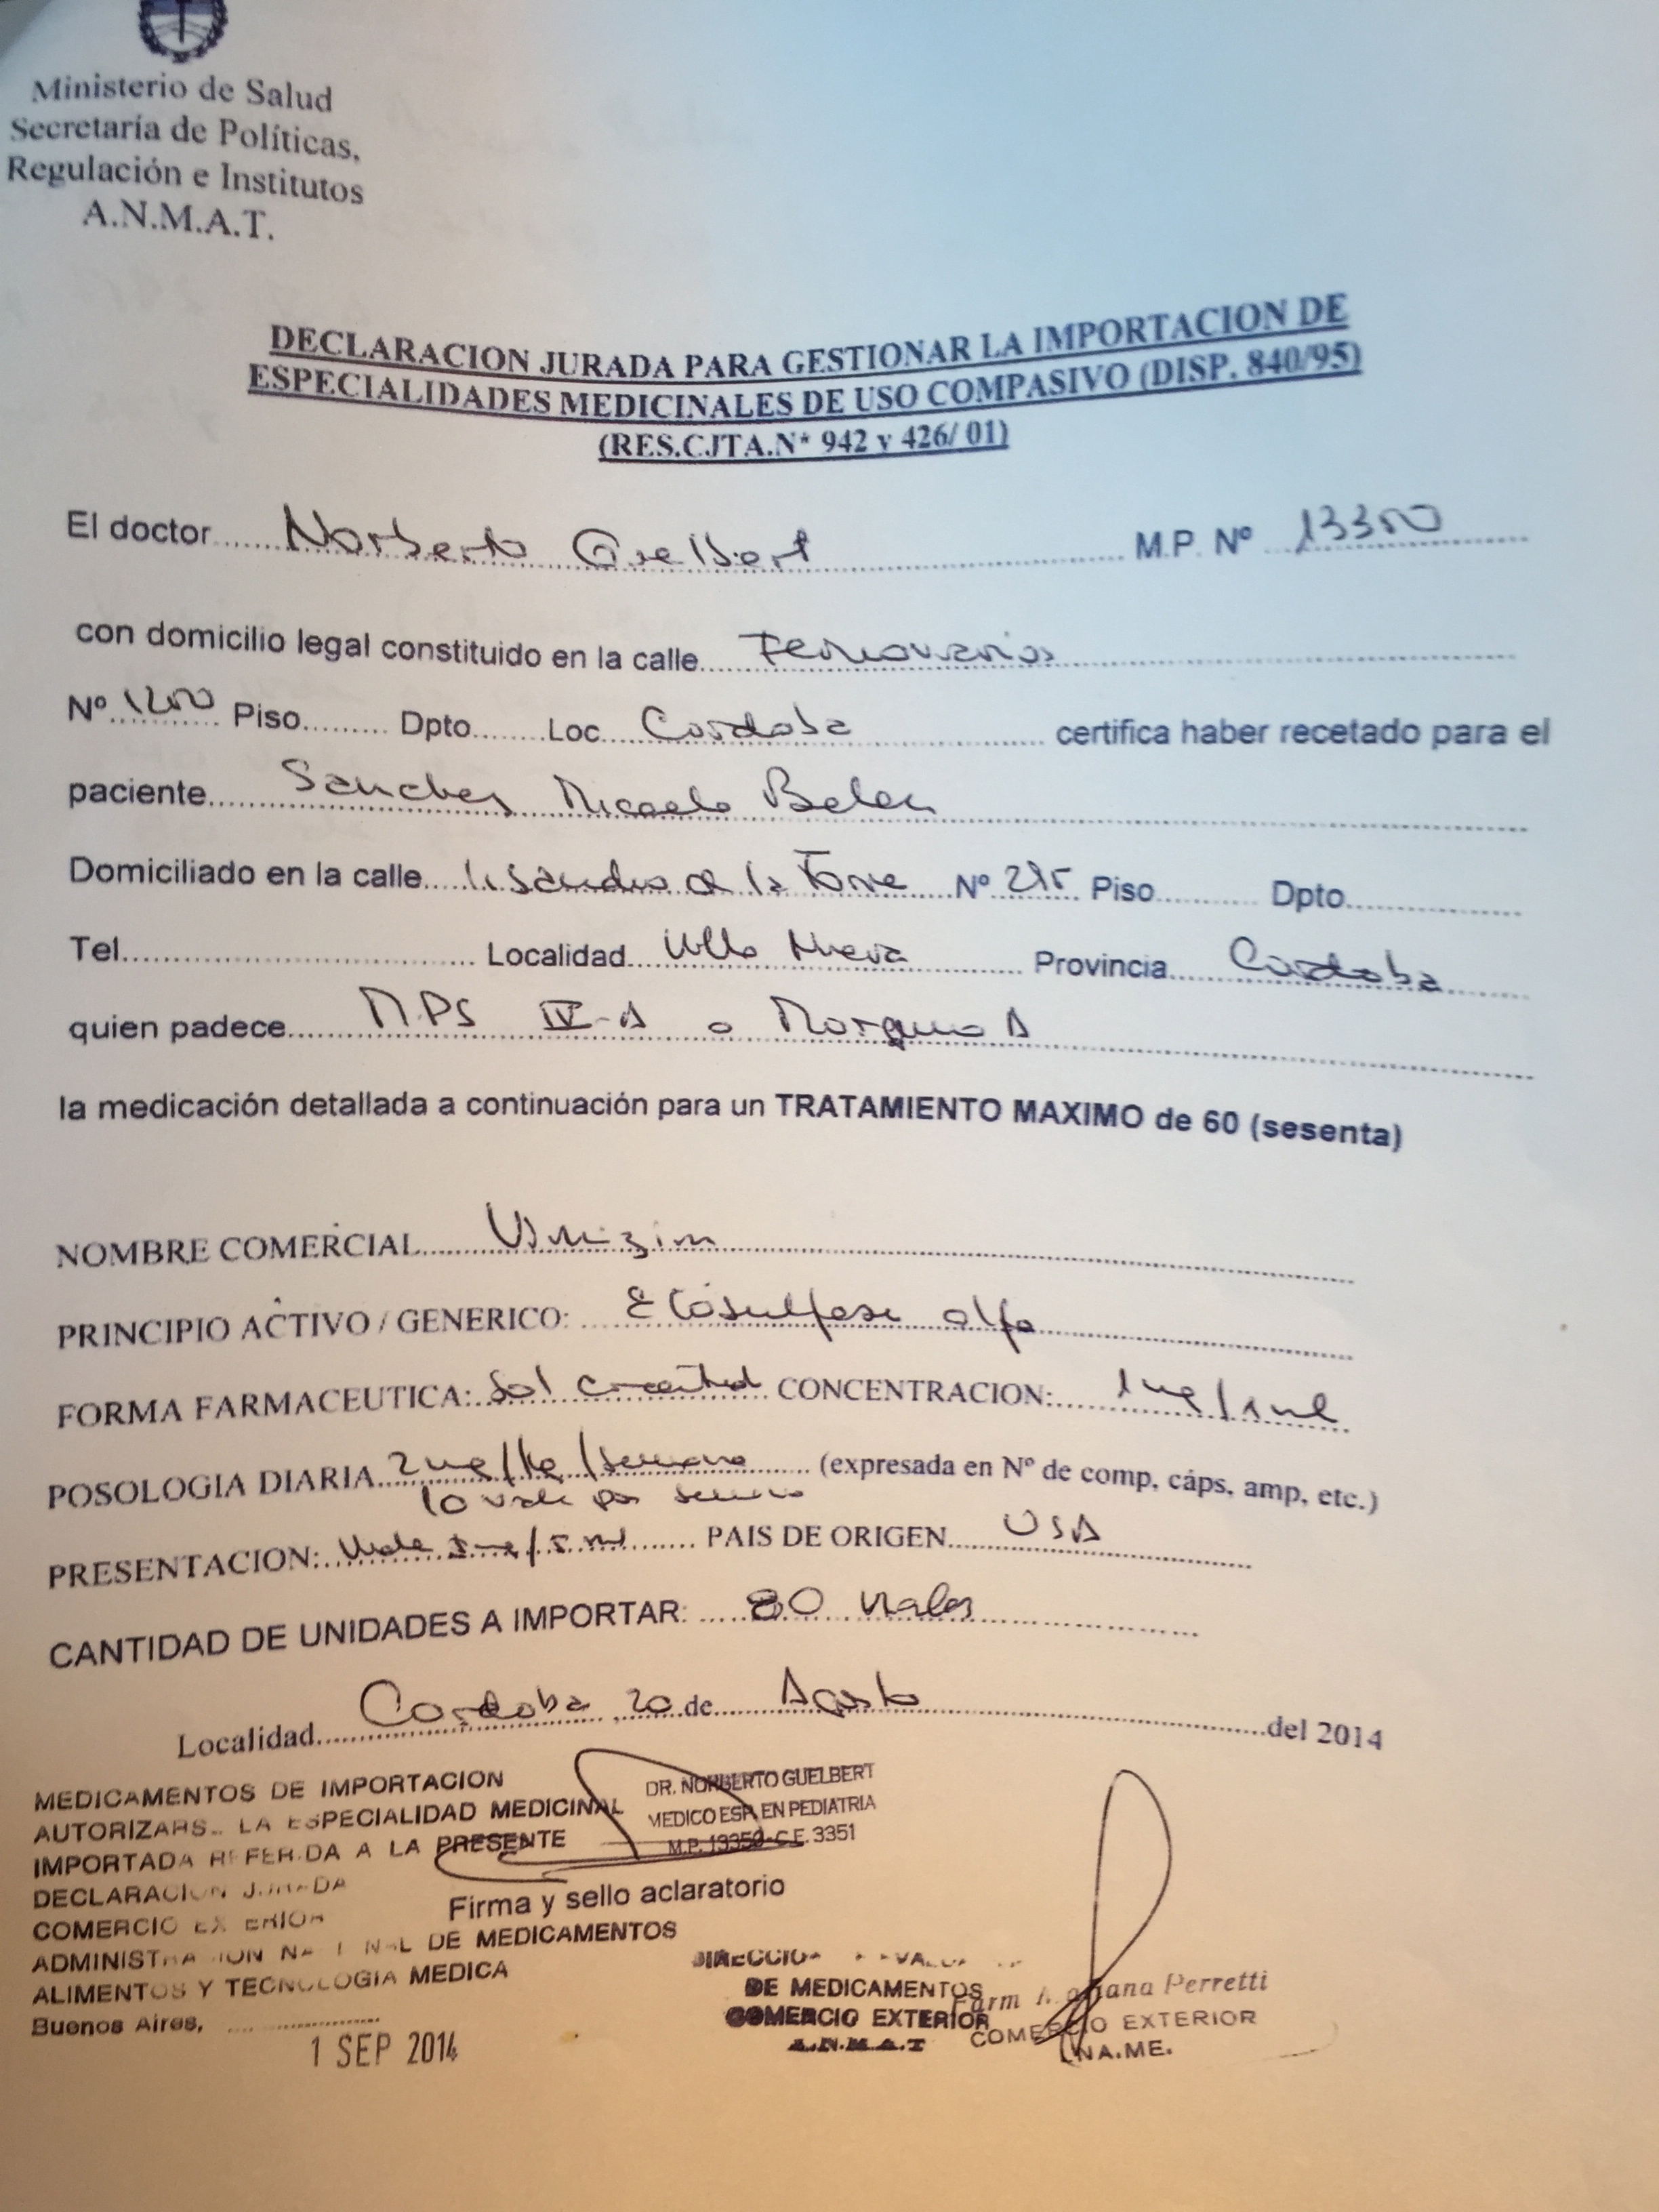 Ministerio de Salud
Secretaría de Políticas,
Regulación e Institutos
A.N.M.A.T.
DECLARACION JURADA PARA GESTIONAR LA IMPORTACION DE
ESPECIALIDADES MEDICINALES DE USO COMPASIVO (DISP. 840/95)
(RES.CJTA.N* 942 y 426/ 01)
El doctor Norberto Guelbert M.P. Nº 13350
con domicilio legal constituido en la calle Ferroviarios
Nº 1200 Piso Dpto Loc Cordoba certifica haber recetado para el
paciente Sanchez Micaela Belen
Domiciliado en la calle Lisandro de la Torre Nº Piso Dpto
Tel Localidad Villa Nueva Provincia Cordoba
quien padece MPS IV-A o Morquio A
la medicación detallada a continuación para un TRATAMIENTO MAXIMO de 60 (sesenta)
NOMBRE COMERCIAL Vimizim
PRINCIPIO ACTIVO / GENERICO: Elosulfase alfa
FORMA FARMACEUTICA: Sol CONCENTRACION: 1mg/1ml
POSOLOGIA DIARIA 2mg/kg/semana (expresada en Nº de comp, cáps, amp, etc.)
10 viales por semana
PRESENTACION: 5mg/5ml PAIS DE ORIGEN USA
CANTIDAD DE UNIDADES A IMPORTAR: 80 viales
Localidad Cordoba, 20 de Agosto del 2014
MEDICAMENTOS DE IMPORTACION
AUTORIZARSE LA ESPECIALIDAD MEDICINAL
IMPORTADA REFERIDA A LA PRESENTE
DECLARACION JURADA
COMERCIO EXTERIOR
ADMINISTRACION NACIONAL DE MEDICAMENTOS
ALIMENTOS Y TECNOLOGIA MEDICA
Buenos Aires,
1 SEP 2014
DR. NORBERTO GUELBERT
MEDICO ESP. EN PEDIATRIA
M.P. 13350-C.E. 3351
Firma y sello aclaratorio
DE MEDICAMENTOS
COMERCIO EXTERIOR
A.N.M.A.T
Farm Perretti
COMERCIO EXTERIOR
INA.ME.